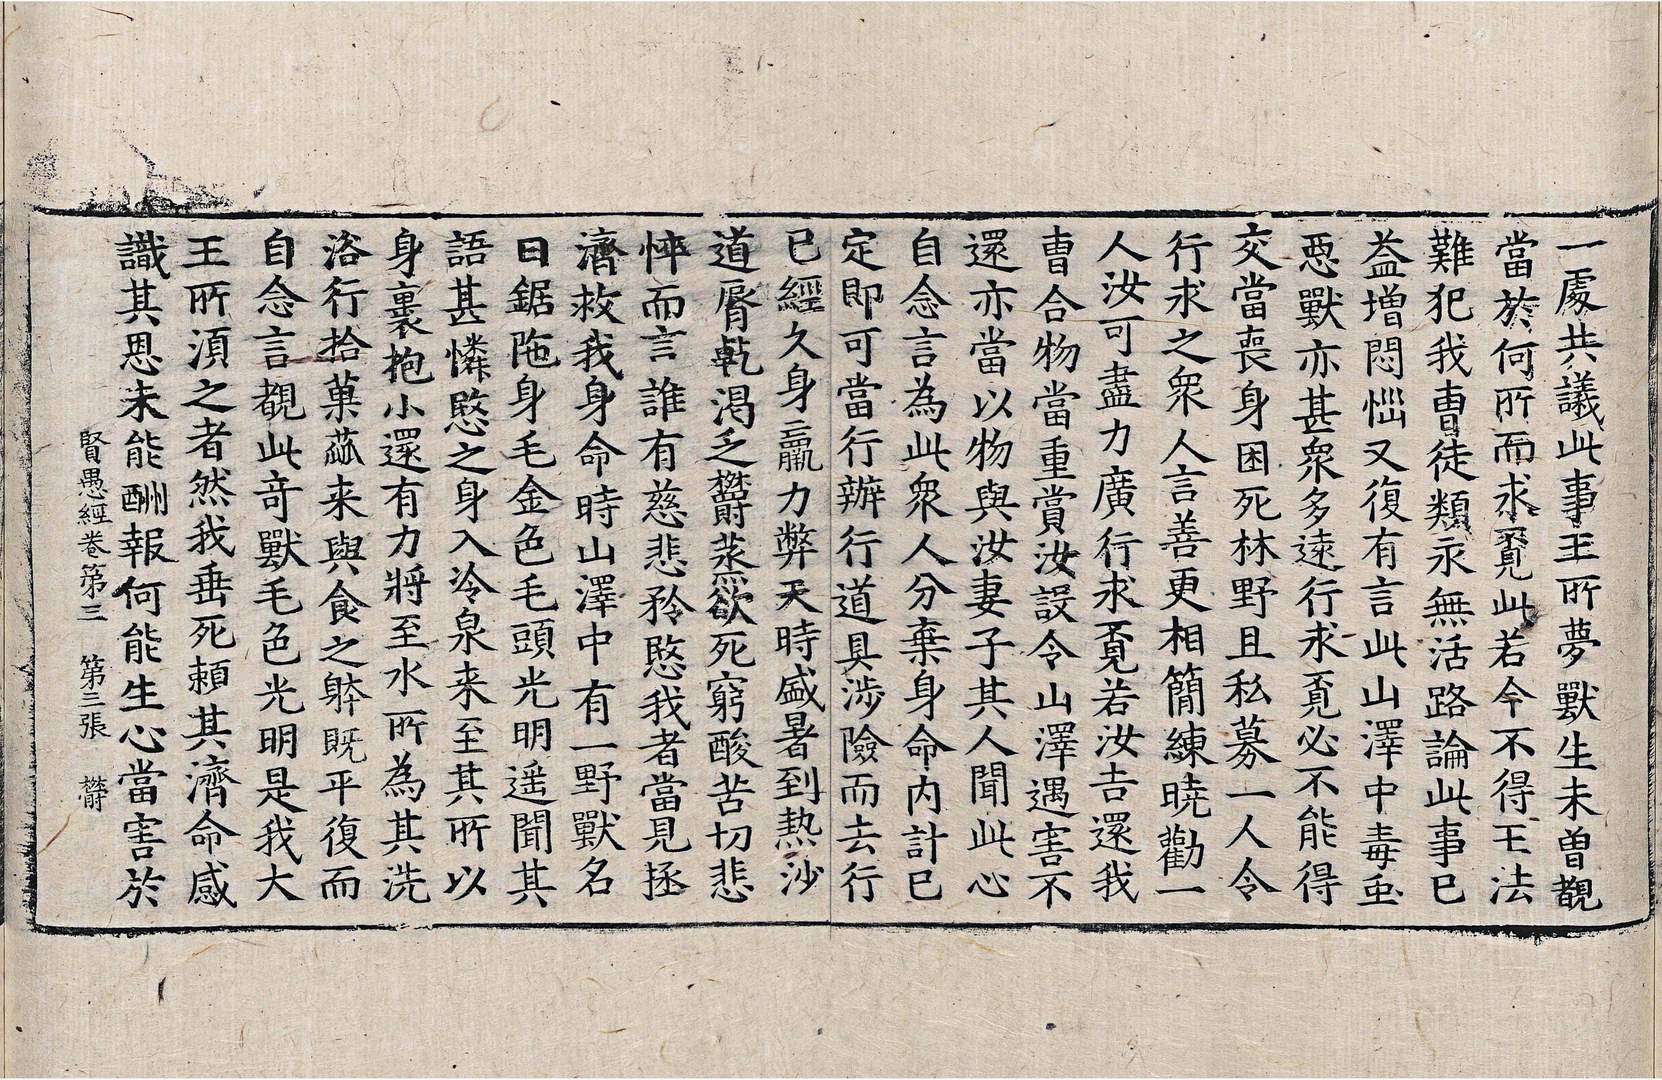 一處共議此事王所夢獸生未曾覩
當於何所而求覓此若今不得王法
難犯我曹徒類永無活路論此事已
益增悶惱又復有言此山澤中毒虫
惡獸亦甚衆多遠行求覓必不能得
交當喪身困死林野且私募一人令
行求之衆人言善更相簡練曉勸一
人汝可盡力廣行求覓若汝吉還我
曹合物當重賞汝設令山澤遇害不
還亦當以物與汝妻子其人聞此心
自念言為此衆人分棄身命內計已
定即可當行辦行道具涉險而去行
已經久身羸力弊天時盛暑到熱沙
道脣乹渴乏欝蒸欲死窮酸苦切悲
悴而言誰有慈悲矜愍我者當見拯
濟救我身命時山澤中有一野獸名
曰鋸陁身毛金色毛頭光明遥聞其
語甚憐愍之身入冷泉来至其所以
身裹抱小還有力將至水所為其洗
浴行拾菓蓏来與食之躰既平復而
自念言覩此竒獸毛色光明是我大
王所湏之者然我垂死頼其濟命感
識其恩未能酬報何能生心當害於
賢愚經卷第三　第三張　欝